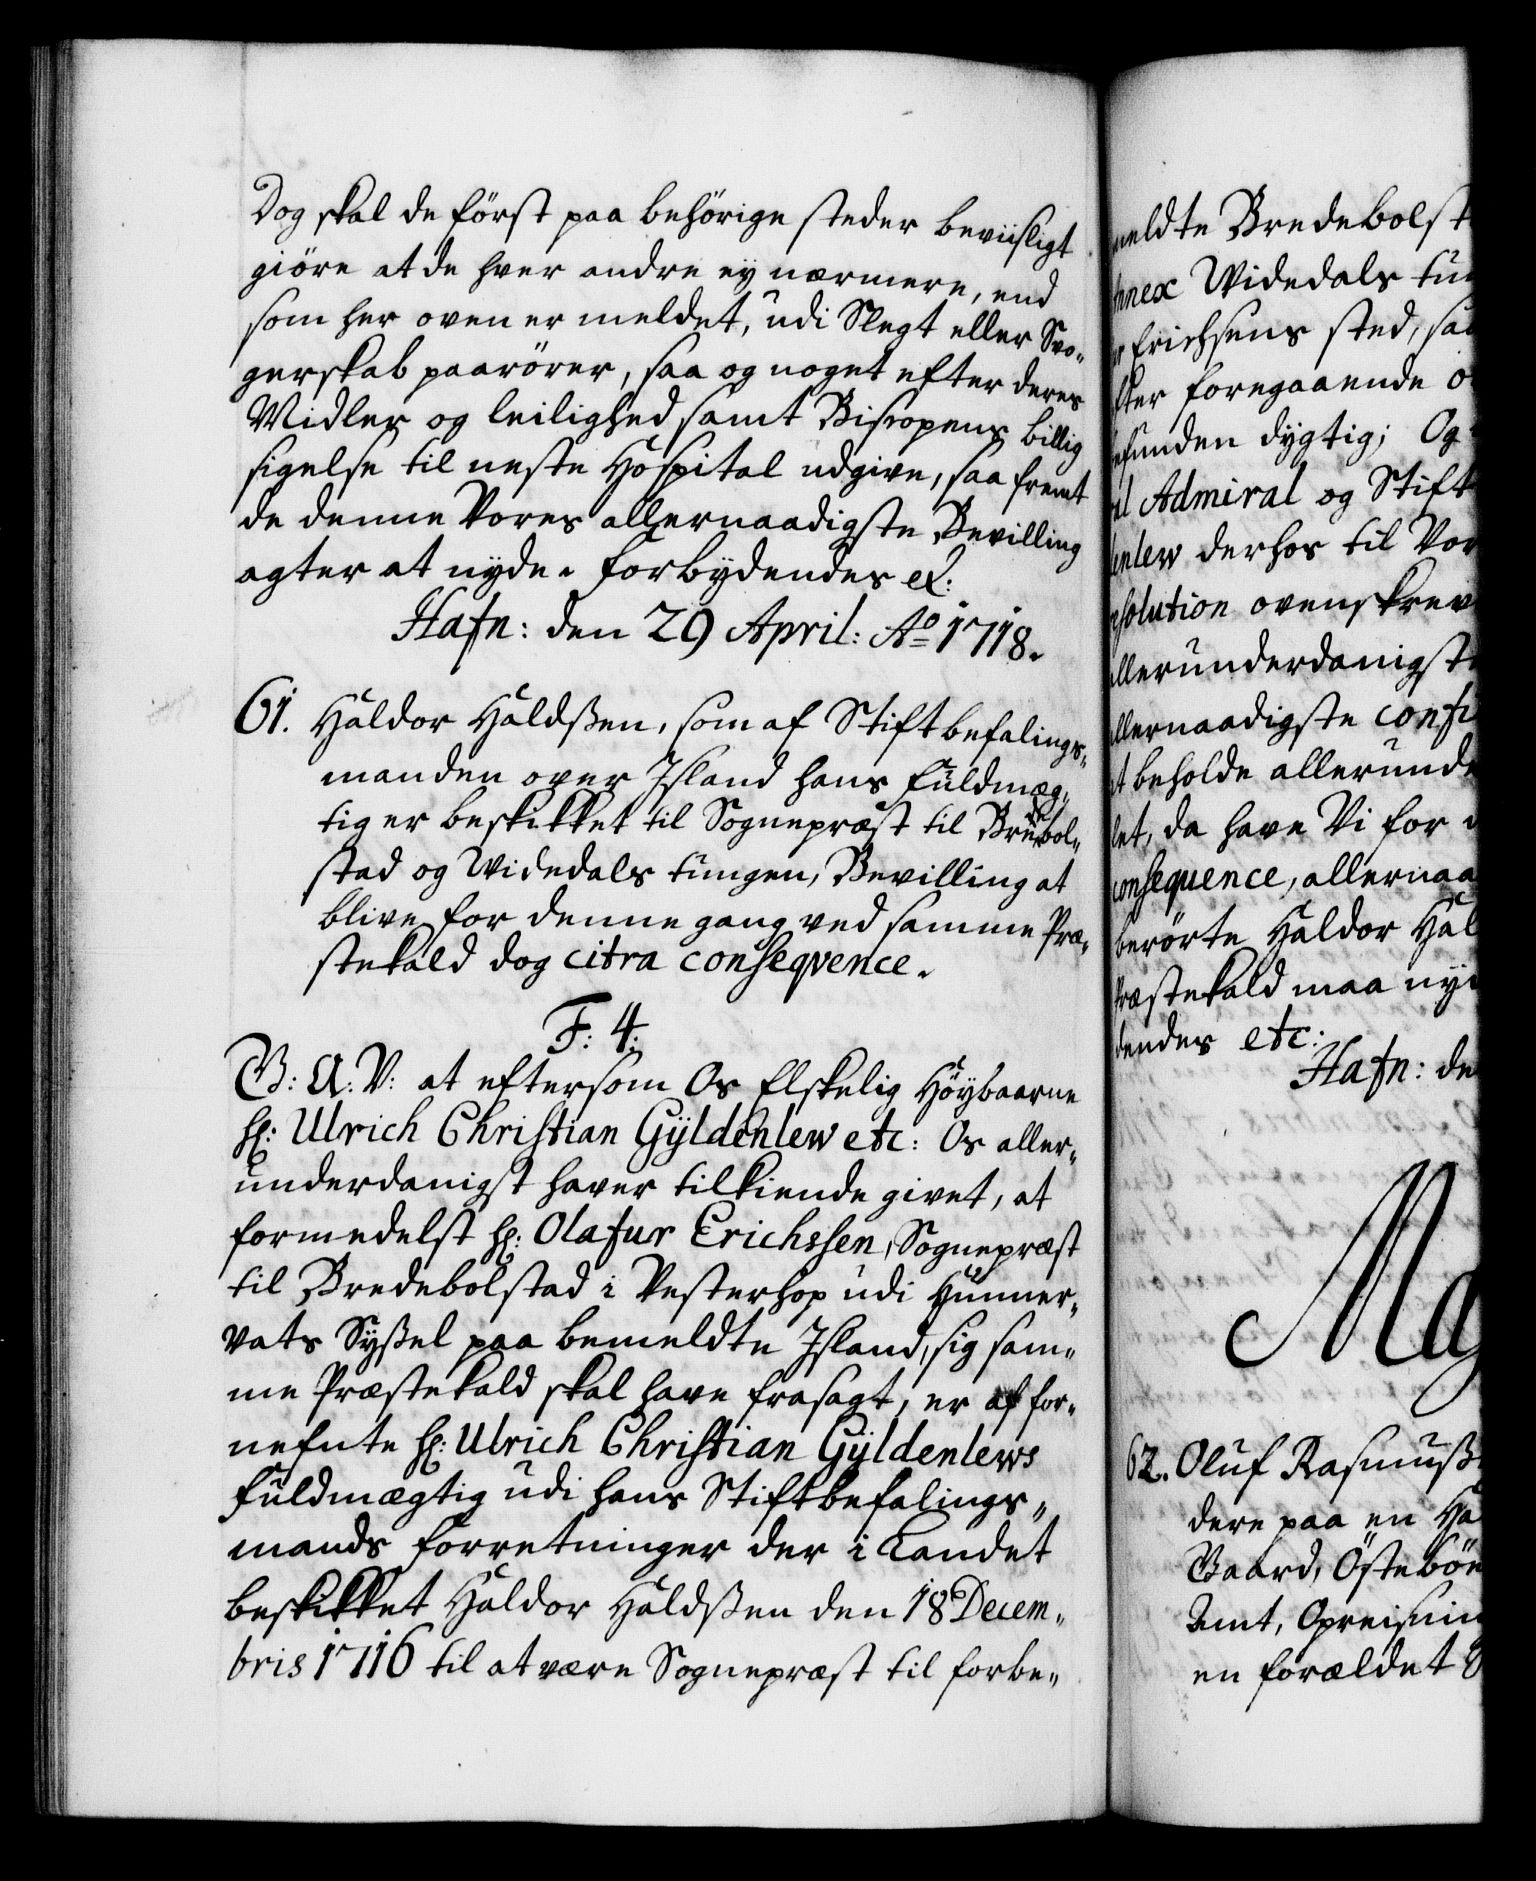 Dog skal de först paa behörige steder beviisligt
giöre at de hver andre ey nærmere, end
som her oven er meldet, udi Slegt eller Svo-
gerskab paarörer, saa og noget efter deres
Midler og leilighed samt Bispens billig
sigelse til neste Hospital udgive, saa fremt
de denne Vores allernaadigste Bevilling
agter at nyde. Forbydendes etc:
Hafn: den 29 April: Ao 1718.
61. Haldor Haldßen, som af Stiftbefalings-
manden over Island hans fuldmæg-
tig er beskikket til Sognepræst til Bredebol-
stad og Widedals tungen, Bevilling at
blive for denne gang ved samme Præ-
stekald dog citra conseqvence.
F: 4:
G: A: V: at eftersom Os Elskelig Höybaarne
Hr: Ulrich Christian Gÿldenlew etc: Os aller-
underdanigst haver tilkiende givet, at
formedelst Hr: Olafur Erichssen, Sognepræst
til Bredebolstad i Vesterhop udi Hunner-
vats Syßel paa bemeldte Island, sig sam-
me Præstekald skal have frasagt, er af for-
nefnte Hr: Ulrich Christian Gÿldenlews
fuldmægtig udi hans Stiftbefalings-
mands forretninger der i Landet
beskikket Haldor Haldßen den 18 Decem-
bris 1716 til at være Sognepræst til forbe-
meldte Bredebolst
Annex Widedals tun
Erichsens sted, saa
fter foregaaende
efunden dygtig; Og
al Admiral og Stift
denlew derhos til Vor
esolution ovenskrev
allerunderdanigst
allernaadigste confi
at beholde allerunde
let, da have Vi for
consequence, allernaa
berörte Haldor Hal
Præstekald maa nyd
dendes etc:
Hafn: de
Ma
62. Oluf Rasmuß
dere paa en
Gaard, Östebö
Amt, Opreisnin
en forældet